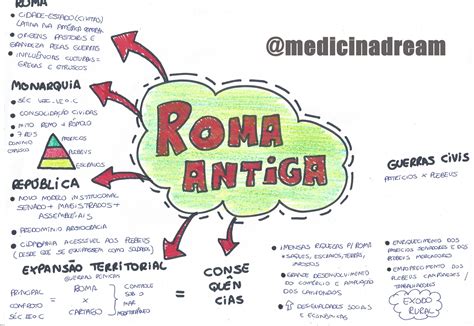 ROMA
• CIDADE-ESTADO (CIVITAS)
LATINA NA
• ORIGENS PASTORIS E
GRANDEZA PELAS GUERRAS
• INFLUÊNCIAS CULTURAIS =
GREGAS E ETRUSCOS
@medicinadream
MONARQUIA
• SÉC
• CONSOLIDAÇÃO CIVITAS
• MITO REMO + RÔMULO
• 7 REIS
DOMÍNIO
PATRÍCIOS
PLEBEUS
ESCRAVOS
ROMA
ANTIGA
GUERRAS CIVIS
PATRÍCIOS × PLEBEUS
REPÚBLICA
• NOVO MODELO INSTITUCIONAL
SENADO + MAGISTRADOS +
ASSEMBLÉIAS
• PREDOMÍNIO ARISTOCRACIA
• CIDADANIA ACESSÍVEL AOS PLEBEUS
(DESDE QUE SE EQUIPASSEM COMO SOLDADOS)
EXPANSÃO TERRITORIAL
GUERRAS PÚNICAS
PRINCIPAL
CONFRONTO
SÉC
=
ROMA
×
CARTAGO
CONTROLE
SOB O
MAR
MEDITERRÂNEO
=
CONSE
QUÊN
CIAS
• IMENSAS RIQUEZAS P/ ROMA
SAQUES, ESCRAVOS, TERRAS,
IMPOSTOS
• GRANDE DESENVOLVIMENTO
DO COMÉRCIO E AMPLIAÇÃO
DOS LATIFÚNDIOS
• ↑ DESIGUALDADES SOCIAIS
E ECONÔMICAS
• ENRIQUECIMENTO DOS
PATRÍCIOS SENADORES E DOS
PLEBEUS MERCADORES
• EMPOBRECIMENTO DOS
PLEBEUS CAMPONESES /
TRABALHADORES
ÊXODO
RURAL